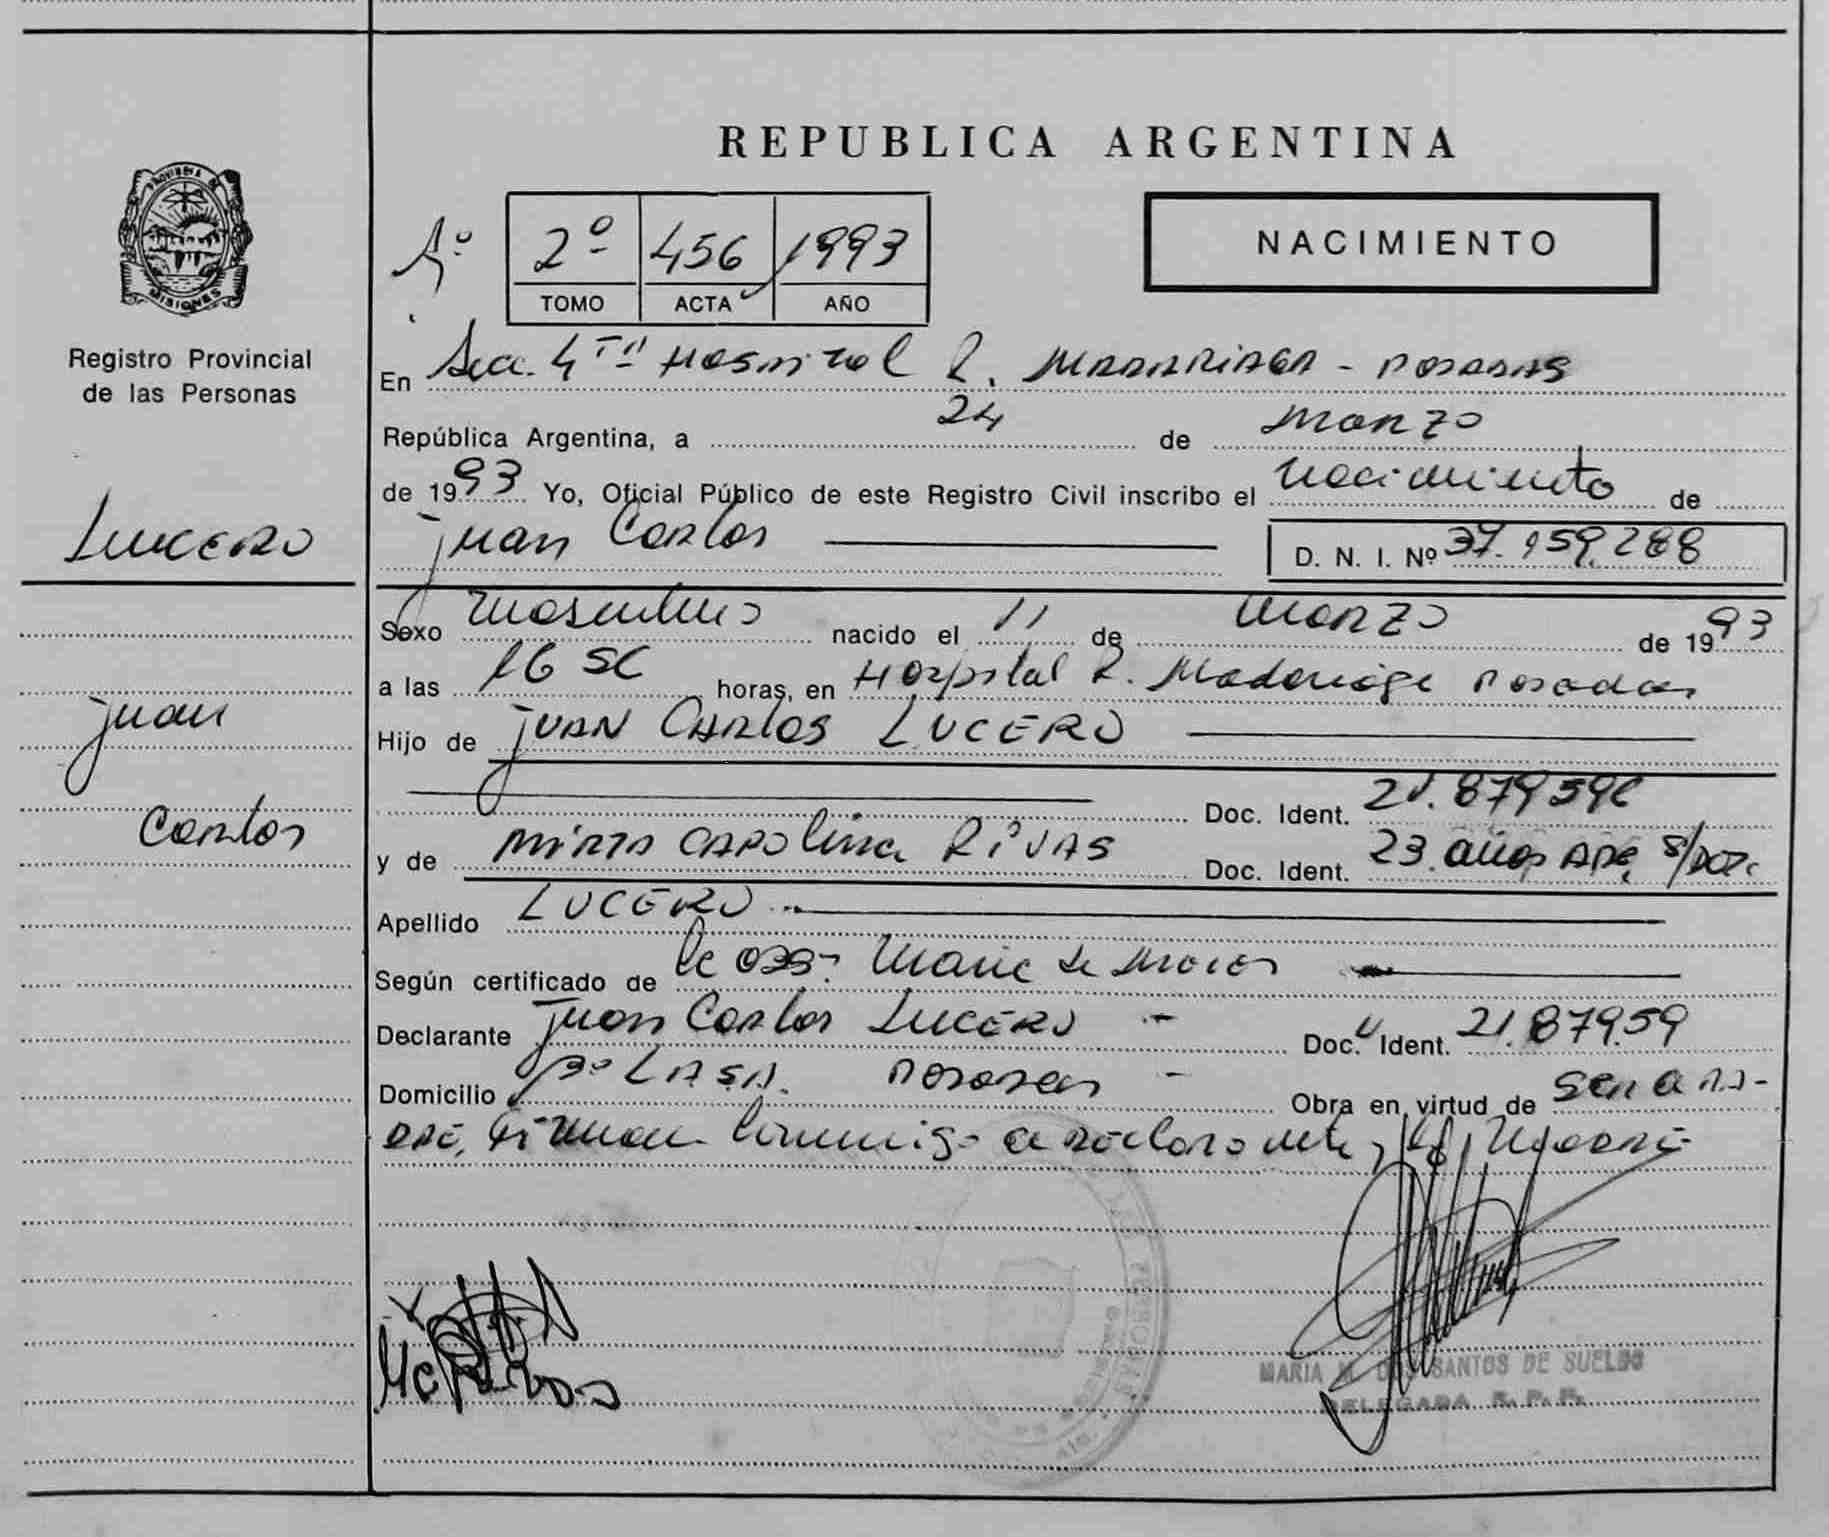 REPUBLICA ARGENTINA
PROVINCIA DE
MISIONES
Registro Provincial
de las Personas
Aº
2º 456 1993
TOMO ACTA AÑO
NACIMIENTO
LUCERO
Juan
Carlos
En Secc. 4ta Hospital R. MADARIAGA - POSADAS
República Argentina, a 24 de Marzo
de 1993 Yo, Oficial Público de este Registro Civil inscribo el Nacimiento de
Juan Carlos D. N. I. Nº 37.159.288
Sexo Masculino nacido el 11 de Marzo de 1993
a las 16 50 horas, en Hospital R. Madariaga Posadas
Hijo de JUAN CARLOS LUCERO
Doc. Ident. 21.879.59
y de MIRTA CAROLINA RIVAS Doc. Ident. 23 años ARG. S/DOC.
Apellido LUCERO
Según certificado de
Declarante Juan Carlos LUCERO - Doc. Ident. 21.879.59
Domicilio Posadas - Obra en virtud de ser
Firman conmigo el declarante y la madre
MARIA M. DOS SANTOS DE SUELDO
DELEGADA R. P. P.